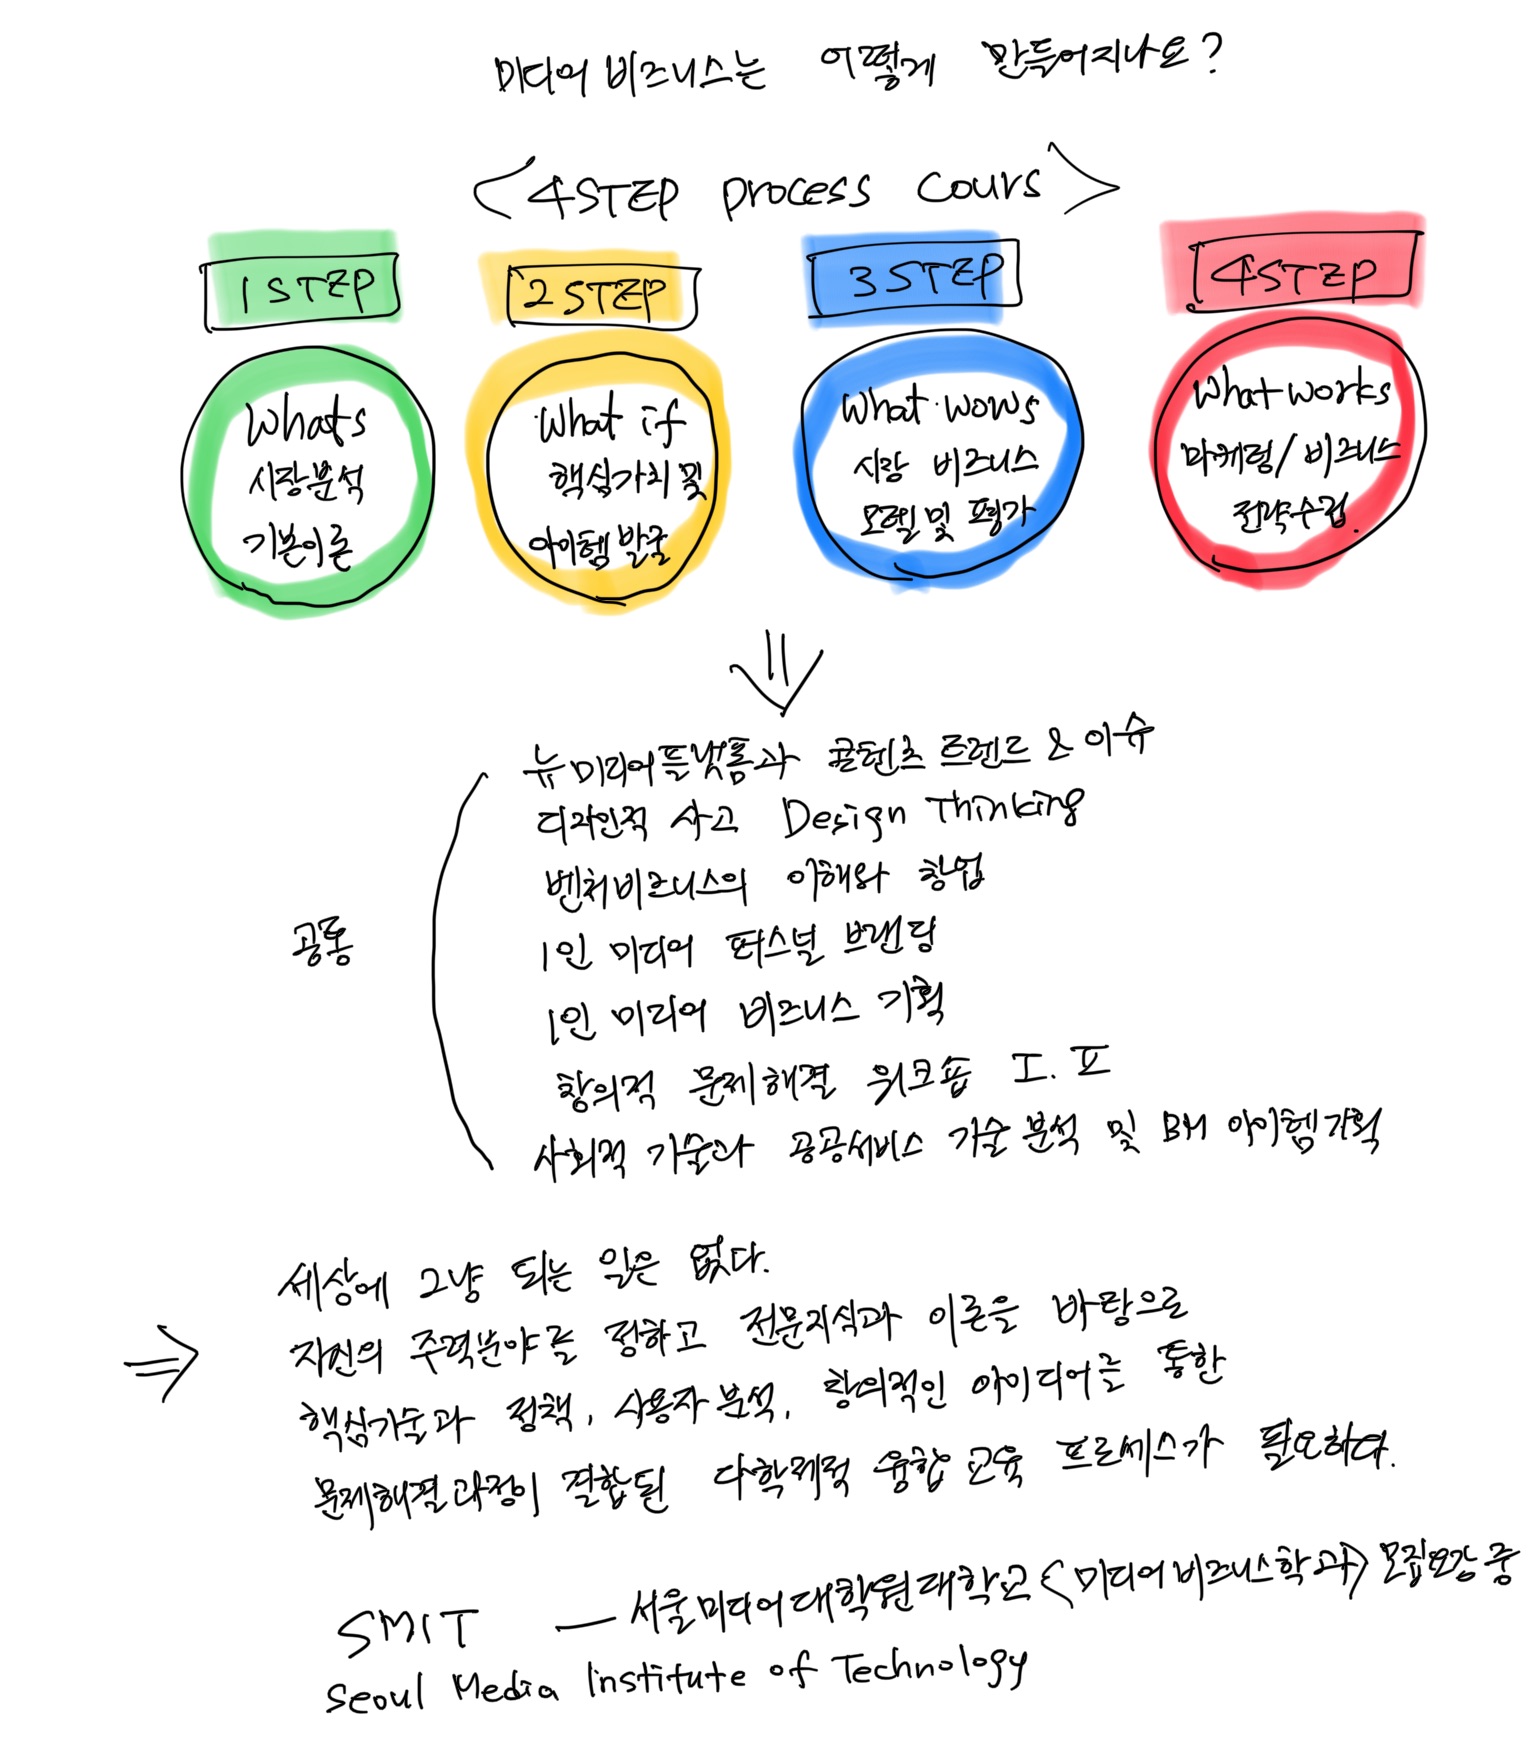 미디어 비즈니스는 어떻게 만들어지나요?
<4STEP process cours>
1 STEP
Whats
시장분석
기본이론
2 STEP
What if
핵심가치 및
아이템 발굴
3 STEP
What wows
시장 비즈니스
모델 및 평가
4STEP
What works
마케팅/비즈니스
전략수립.
공통
뉴미디어플랫폼과 콘텐츠 트렌드 & 이슈
디자인적 사고 Design Thinking
벤처비즈니스의 이해와 창업
1인 미디어 퍼스널 브랜딩
1인 미디어 비즈니스 기획
창의적 문제해결 워크숍 I. II
사회적 기술과 공공서비스 기술 분석 및 BM 아이템기획
세상에 그냥 되는 일은 없다.
⇒ 자신의 주력분야를 정하고 전문지식과 이론을 바탕으로
핵심기술과 정책, 사용자 분석, 창의적인 아이디어를 통한
문제해결과정이 결합된 다학제적 융합 교육 프로세스가 필요하다.
SMIT — 서울미디어대학원대학교 <미디어비즈니스학과> 모집요강 중
Seoul Media Institute of Technology